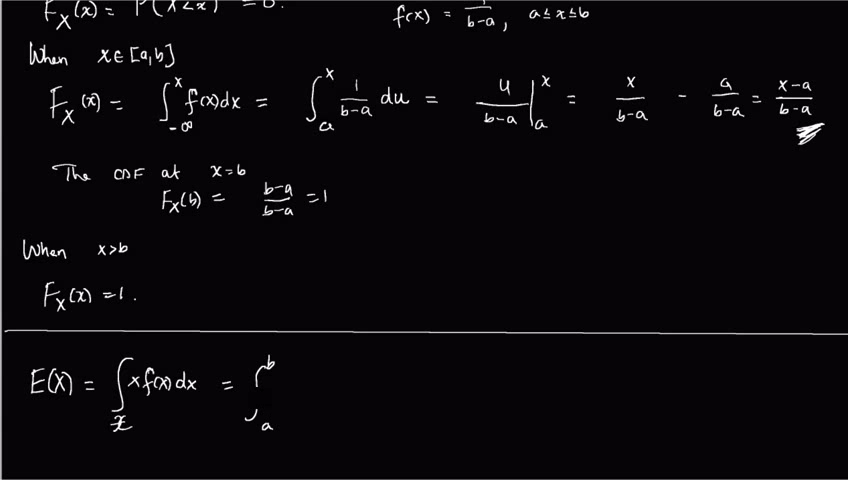 F_X(x) = P(X<x) = 0. f(x) = 1/(b-a), a ≤ x ≤ b
When x∈[a,b]
F_X(x) = ∫_{-∞}^{x} f(x)dx = ∫_a^x 1/(b-a) du = u/(b-a) |_a^x = x/(b-a) - a/(b-a) = (x-a)/(b-a)
The CDF at x=b
F_X(b) = (b-a)/(b-a) = 1
When x>b
F_X(x) = 1.
E(X) = ∫_x x f(x) dx = ∫_a^b